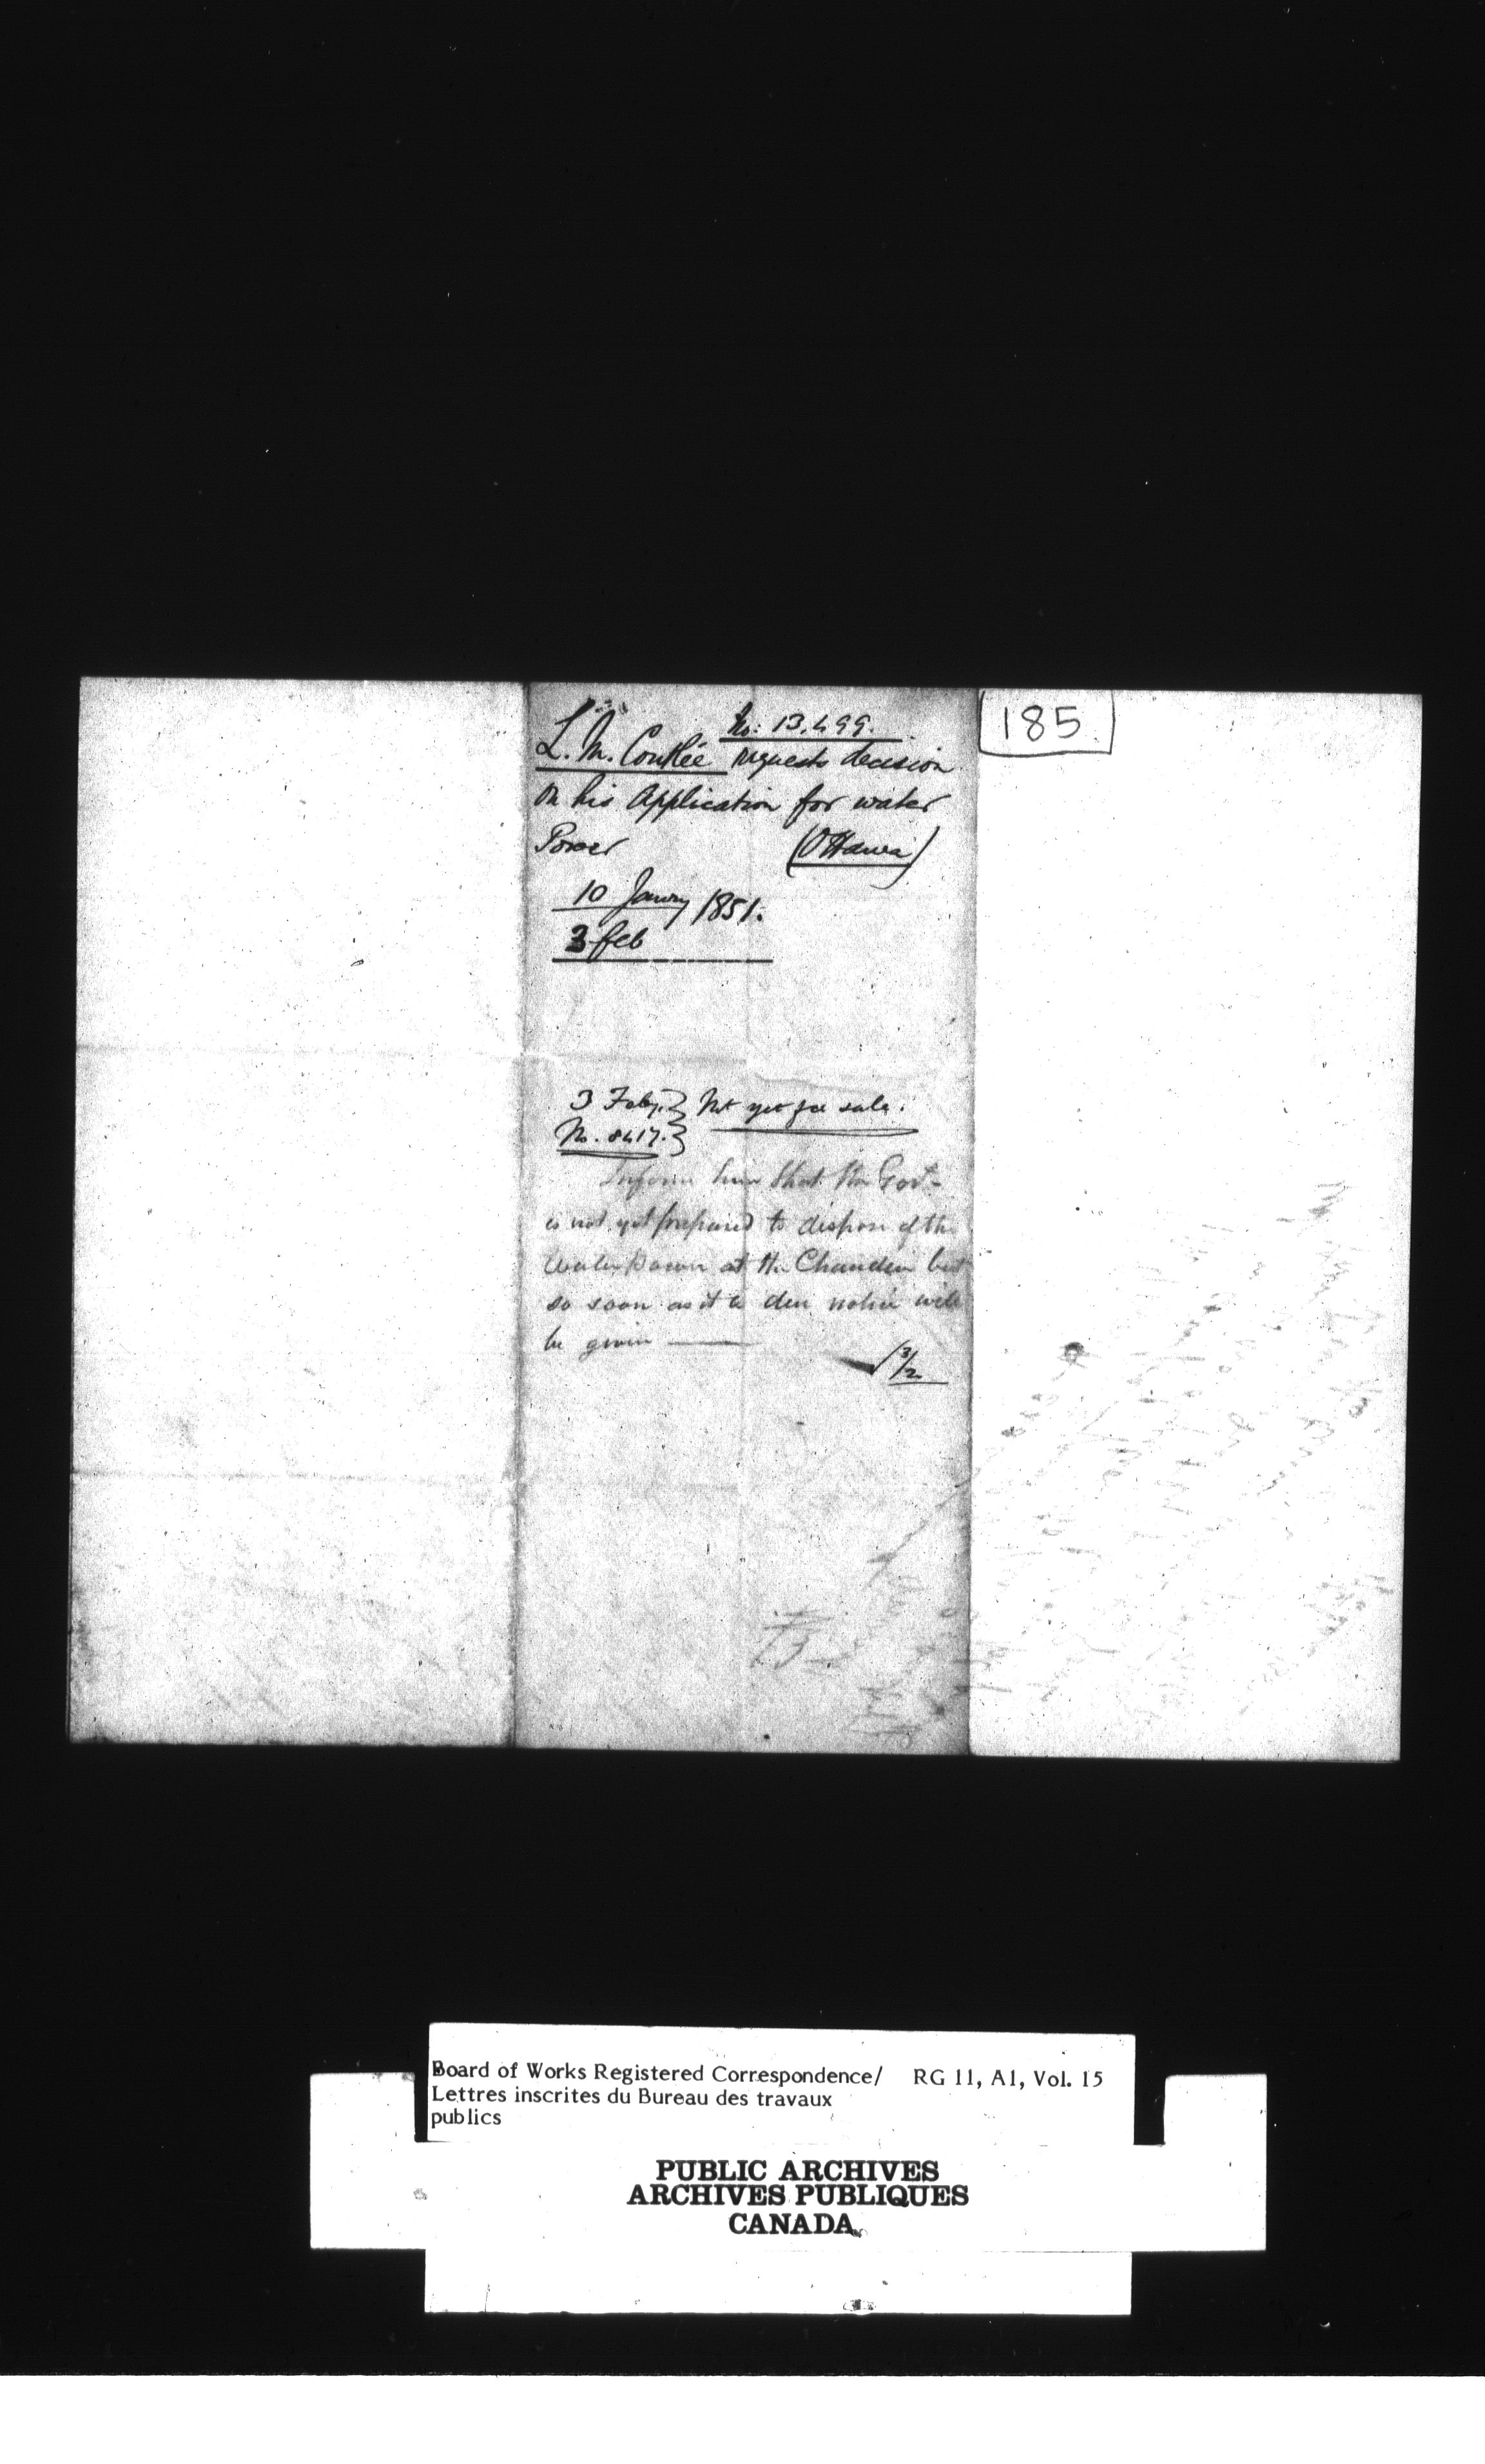 No: 13,499.
185
L. M. Coutlée requests decision
on his Application for water
Power (Ottawa)
10 Janury 1851.
3 feb
3 Feby. } Not yet for sale.
No. 8417. }
Inform him that the Govt
is not yet prepared to dispose of the
Water Power at the Chaudiere but
so soon as it is due notice will
be given
3/2
Board of Works Registered Correspondence/ RG 11, A1, Vol. 15
Lettres inscrites du Bureau des travaux
publics
PUBLIC ARCHIVES
ARCHIVES PUBLIQUES
CANADA